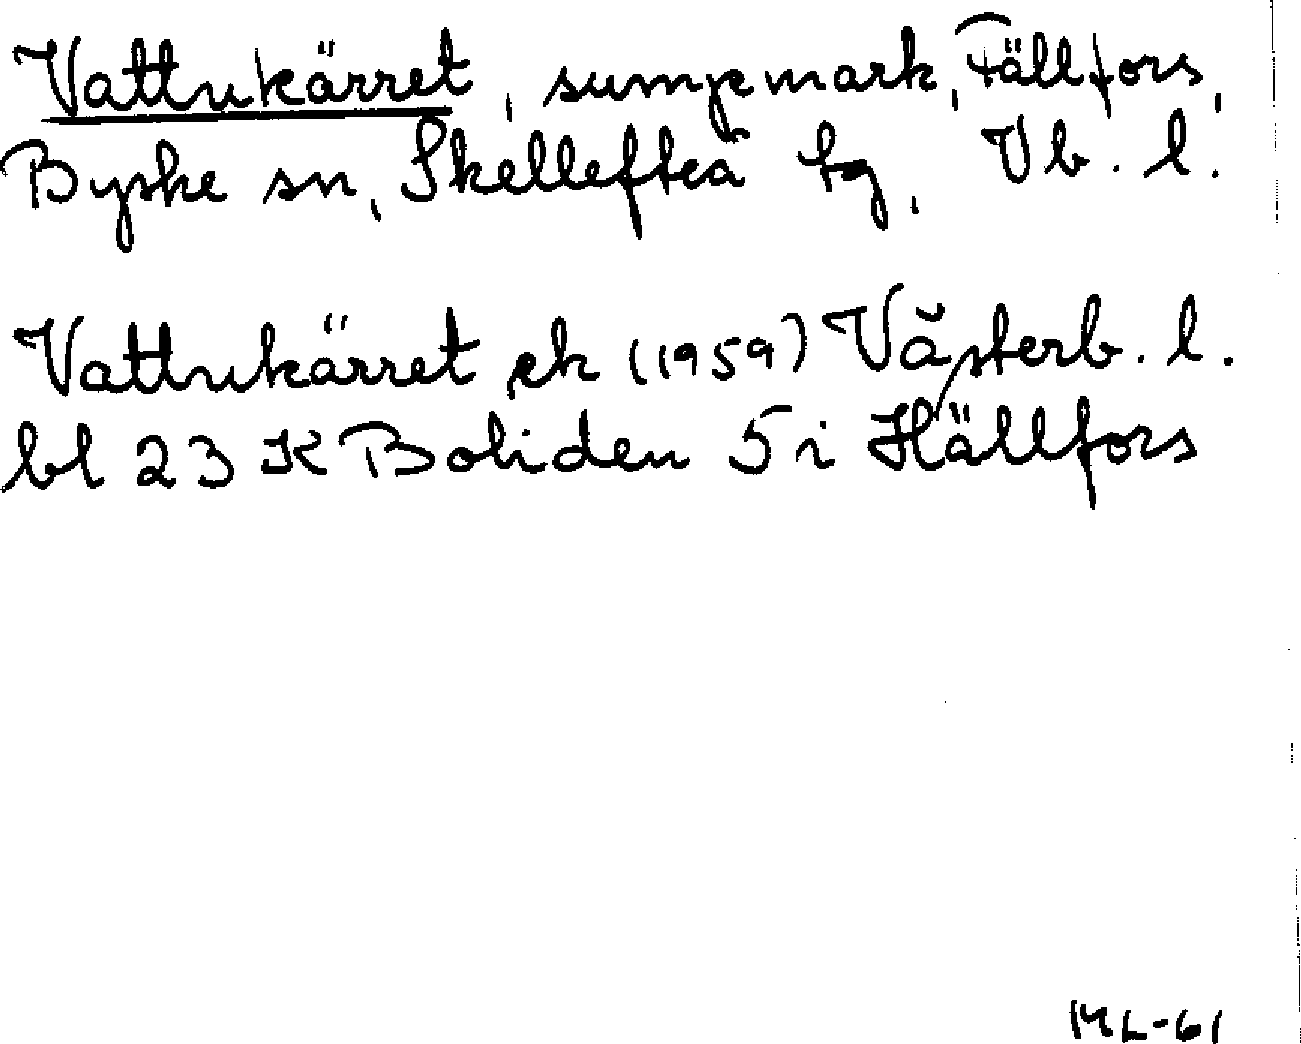 Vattukärret, sumpmark, Fällfors,
Byske sn, Skellefteå tg, Vb. l.
Vattukärret, ek (1959) Västerb. l.
bl 23 K Boliden 5 i Hällfors
ML-61